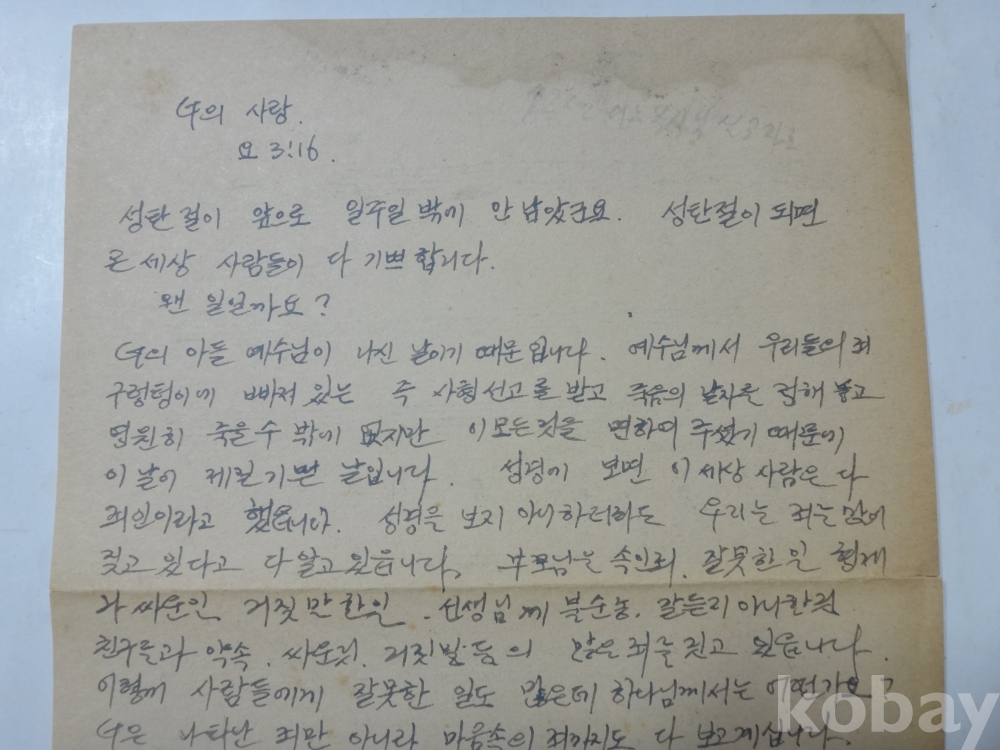 의 사랑.
요 3:16.
성탄절이 앞으로 일주일 밖에 안 남았군요. 성탄절이 되면
온 세상 사람들이 다 기쁘합니다.
왠 일일까요?
의 아들 예수님이 나신 날이기 때문입니다. 예수님께서 우리들의 죄
구렁텅이에 빠져 있는 즉 사형선고를 받고 죽음의 날자를 정해 놓고
영원히 죽을 수 밖에 없지만 이 모든것을 면하여 주셨기 때문에
이 날이 제일 기쁜 날입니다. 성경에 보면 이 세상 사람은 다
죄인이라고 했읍니다. 성경을 보지 아니하더라도 우리는 죄는 많이
짖고 있다고 다 알고 있읍니다. 부모님을 속인죄. 잘못한 일 형제
과 싸운일. 거짓만한일. 선생님께 불순종. 말듣지 아니한것
친구들과 약속. 싸운것. 거짓말 등의 많은 죄를 짓고 있읍니다.
이렇게 사람들에게 잘못한 일도 많은데 하나님께서는 어떤가요?
은 나타난 죄만 아니라 마음속의 죄까지도 다 보고 계십니다.
kobay